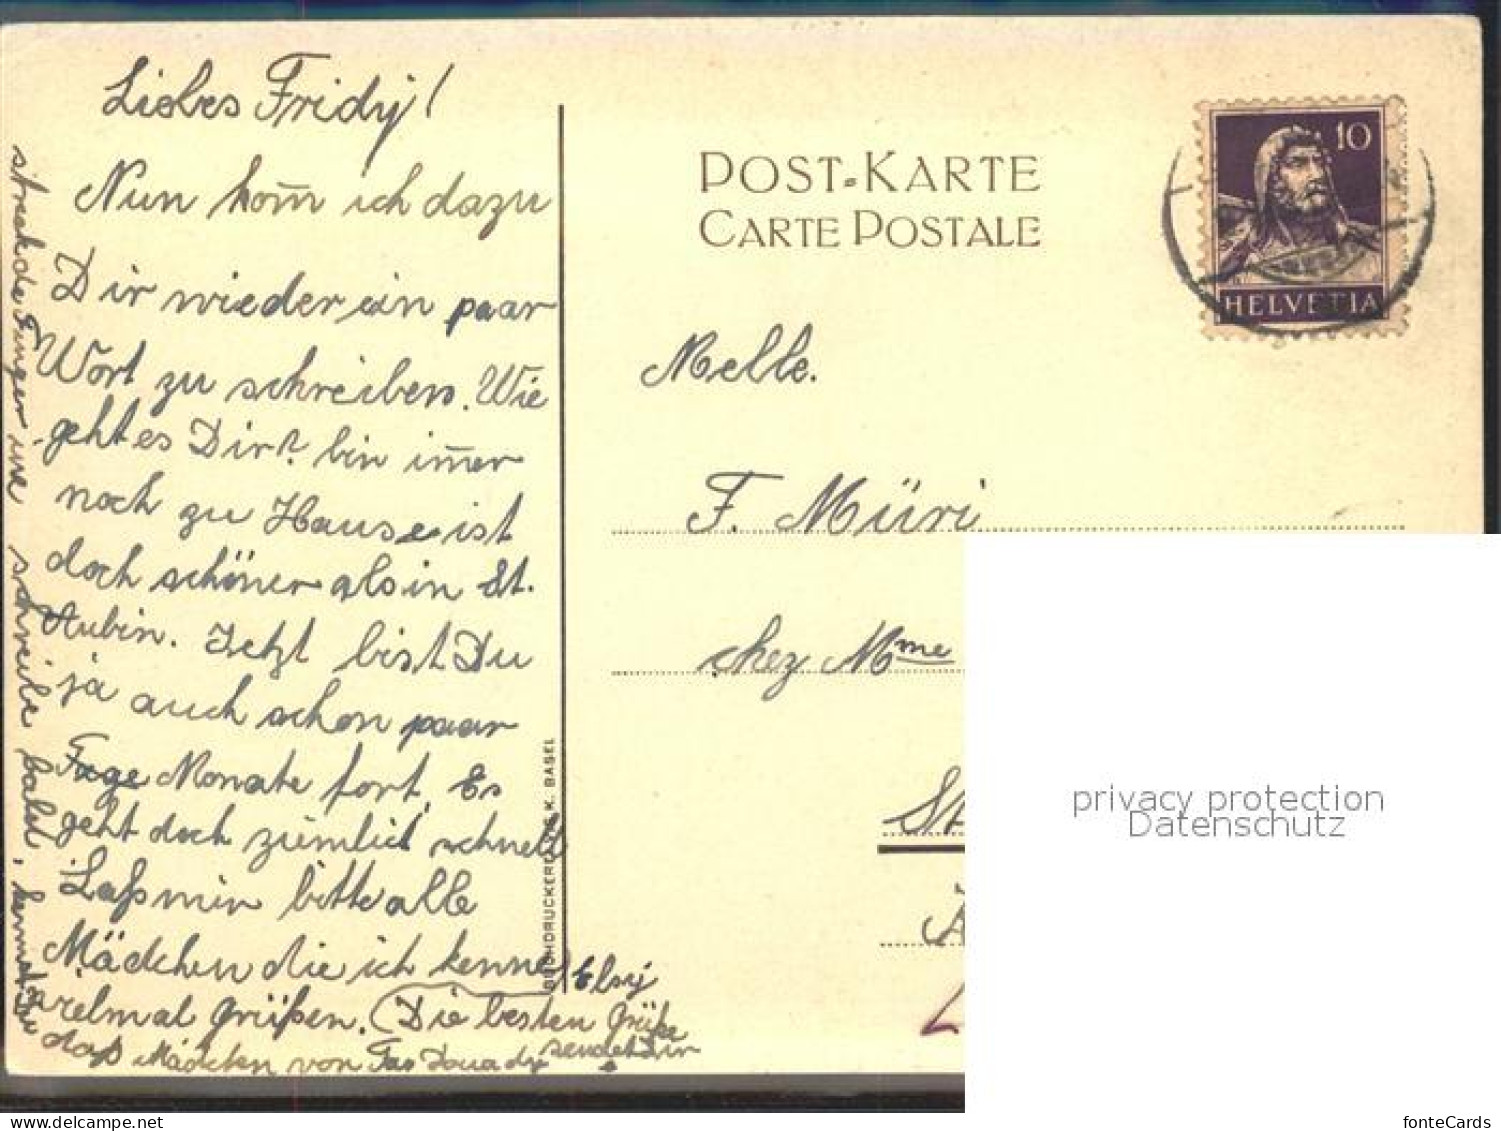 Liebes Fridy!
Nun kom̄ ich dazu
Dir wieder ein paar
Wort zu schreiben. Wie
geht es Dir? bin im̄er
noch zu Hause ist
doch schöner als in St.
Aubin. Jetzt bist Du
ja auch schon paar
Tage Monate fort. Es
geht doch zümlich schnell
Laß mir bitte alle
Mädchen die ich kenne
vielmal grüßen. (Die besten Grüße
sendet Dir
Elsy
daß Mädchen von
strickde Finger
schreibe bald,
BUCHDRUCKEREI BASEL
POST-KARTE
CARTE POSTALE
10
HELVETIA
Melle.
F. Müri
chez Mme
St
privacy protection
Datenschutz
fonteCards